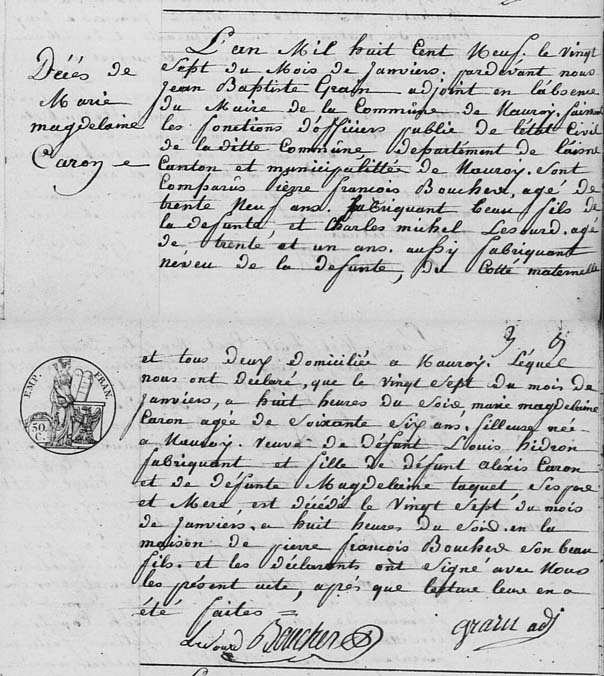 Décés de
Marie
magdelaine
Caron
L'an Mil huit Cent Neuf. le vingt
Sept du Mois de Janviers. pardevant nous
Jean Baptiste Grain adjoint en l'absence
du Maire de la Commune de Nauroy. faisant
les fonctions d'officiers publié de l'état Civil
de la ditte Commune departement de l'aisne
Canton et municipalittée de Nauroy. Sont
Comparûs pièrre françois Boucher, agé de
trente Neuf ans. fabriquant beau fils de
la defunte, et Charles michel Lesourd. agé
de trente et un ans. aussy fabriquant
néveu de la defunte, du Cotté maternelle
et tous deux domiciliée a Nauroy. Léquel
nous ont déclaré, que le vingt Sept du mois de
Janviers, a huit heures du Soir, marie magdelaine
Caron agée de Soixante Six ans. filleuse née
a Nauroy. veuve de défunt Louis hedron
fabriquant et fille de défunt alexis Caron
et de défunte Magdelaine taquet, Ses pere
et Mere, est décédé le vingt Sept du mois
de Janviers. a huit heures du Soir. en la
maison de pierre françois Boucher Son beau
fils. et les déclarants ont Signé avec Nous
les présent acte, aprés que lecture leur en a
été faites =
Lesourd Boucher grain adj
EMP. FRAN.
50
C.